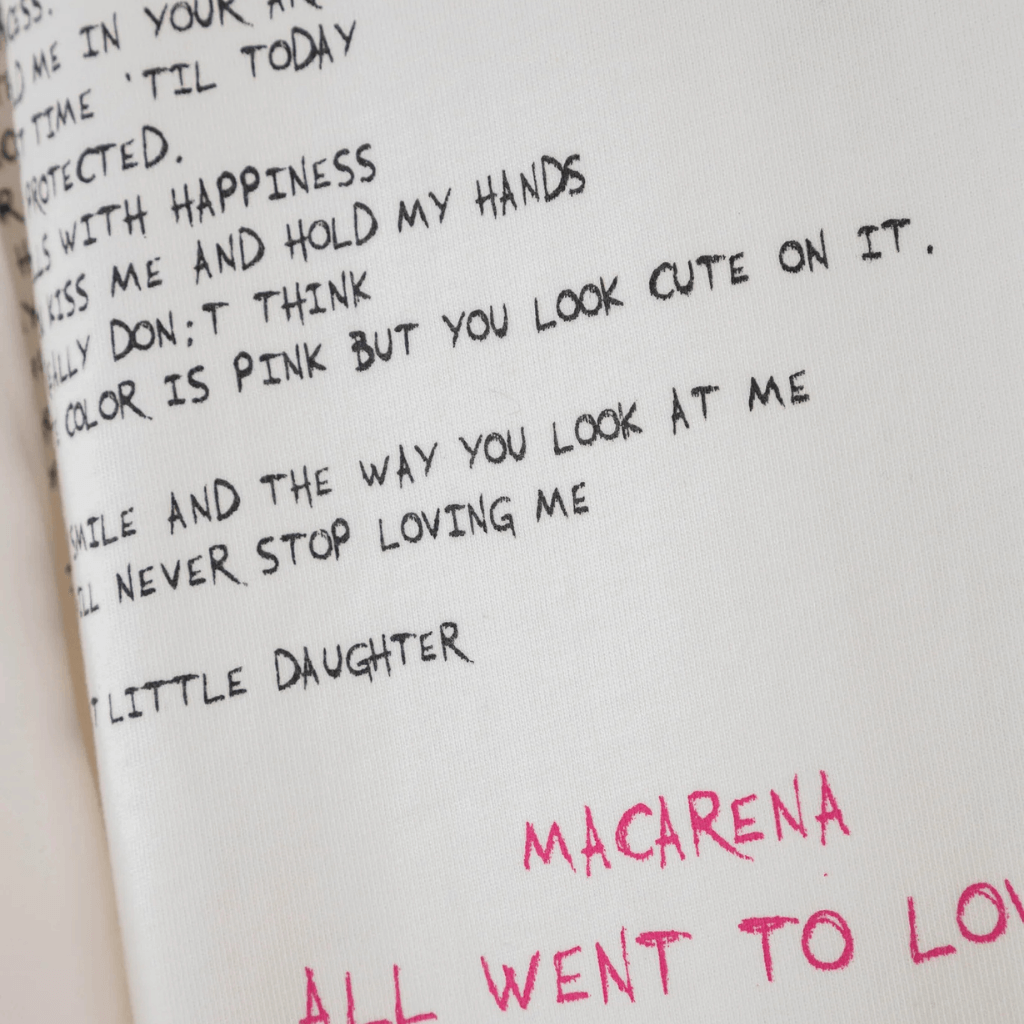 ME IN YOUR
TIME 'TIL TODAY
PROTECTED.
WITH HAPPINESS
KISS ME AND HOLD MY HANDS
DON;T THINK
COLOR IS PINK BUT YOU LOOK CUTE ON IT.
SMILE AND THE WAY YOU LOOK AT ME
NEVER STOP LOVING ME
LITTLE DAUGHTER
MACARENA
ALL WENT TO